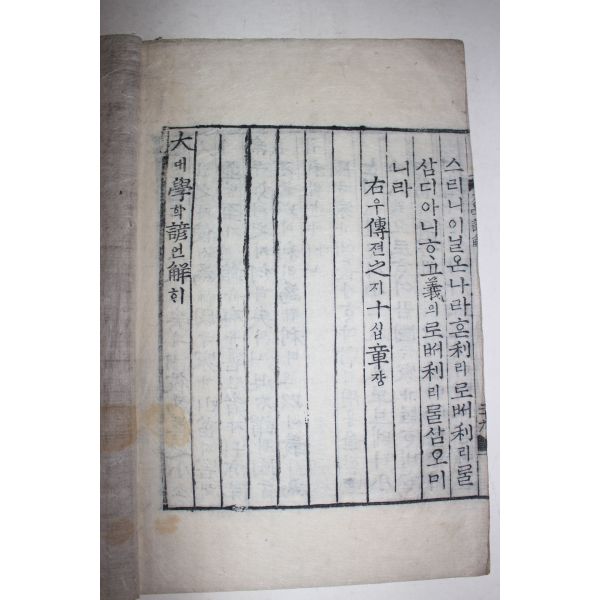 스티니이닐온나라흔利리로ᄡᅥ利리ᄅᆞᆯ
삼디아니ᄒᆞ고義의로ᄡᅥ利리ᄅᆞᆯ삼오미
니라
右우傳젼之지十십章쟝
大대學학諺언解ᄒᆡ